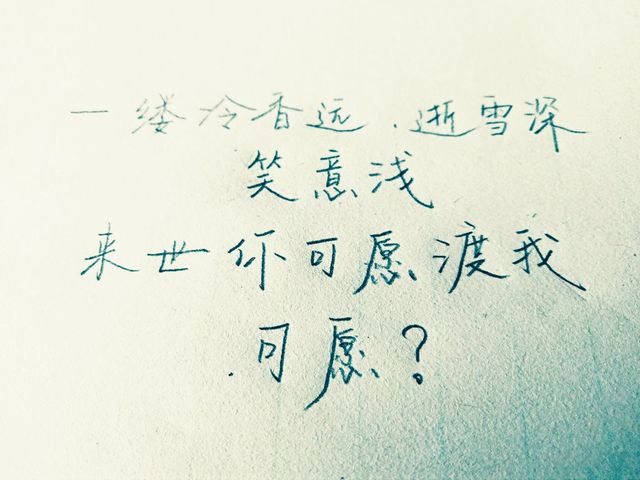 一缕冷香远.逝雪深
笑意浅
来世你可愿渡我
.可愿?